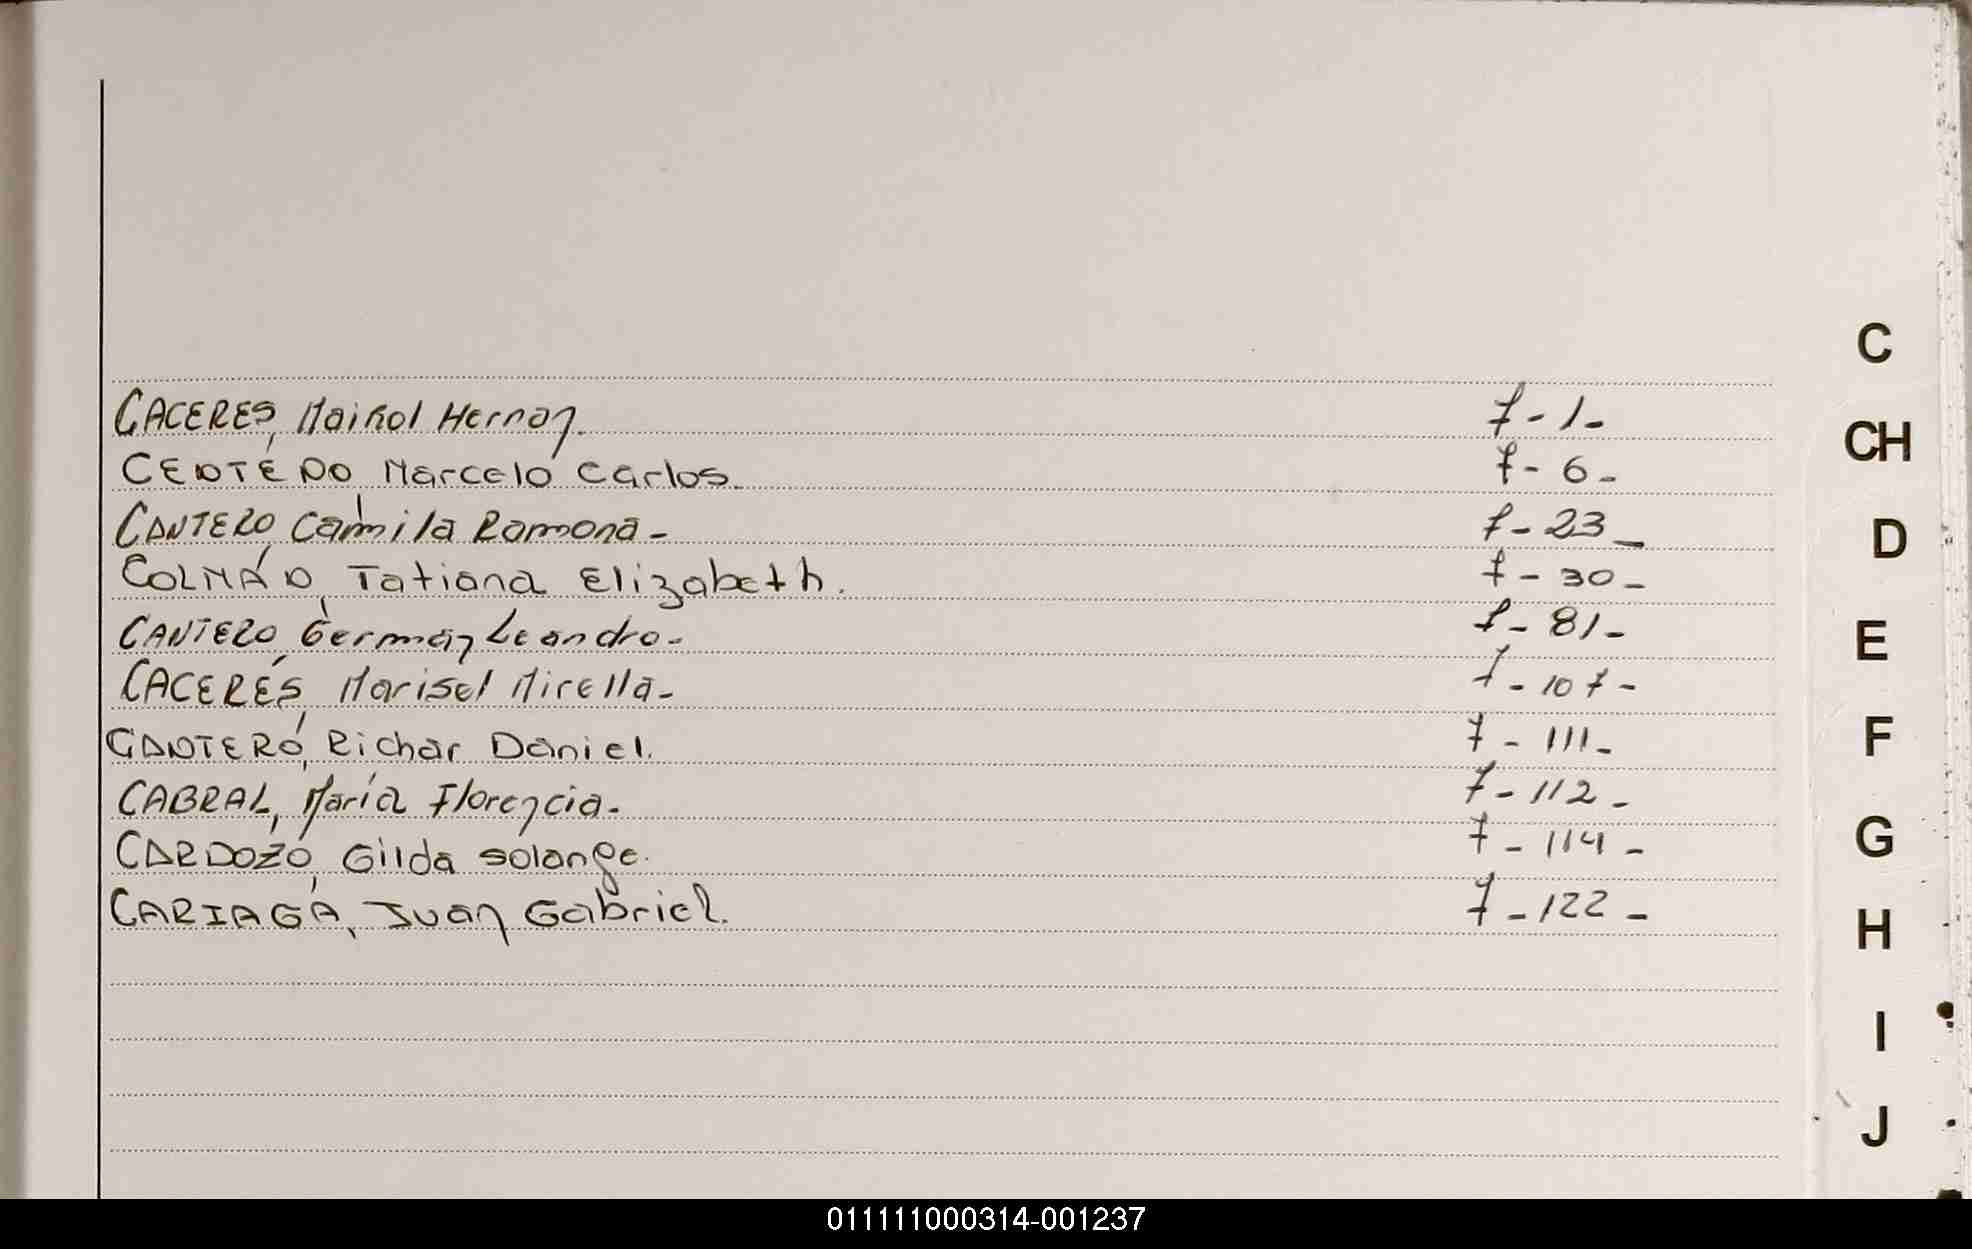 CACERES, Maiñol Hernan.
CENTENO, Marcelo Carlos.
CANTERO, Camila Ramona -
COLMÁN, Tatiana Elizabeth.
CANTERO, Germán Leandro -
CACERES, Marisel Mirella -
CANTERO, Richar Daniel.
CABRAL, María Florencia -
CARDOZO, Gilda Solange.
CARIAGA, Juan Gabriel.
f - 1 -
f - 6 -
f - 23 -
f - 30 -
f - 81 -
f - 107 -
f - 111 -
f - 112 -
f - 114 -
f - 122 -
C
CH
D
E
F
G
H
I
J
011111000314-001237